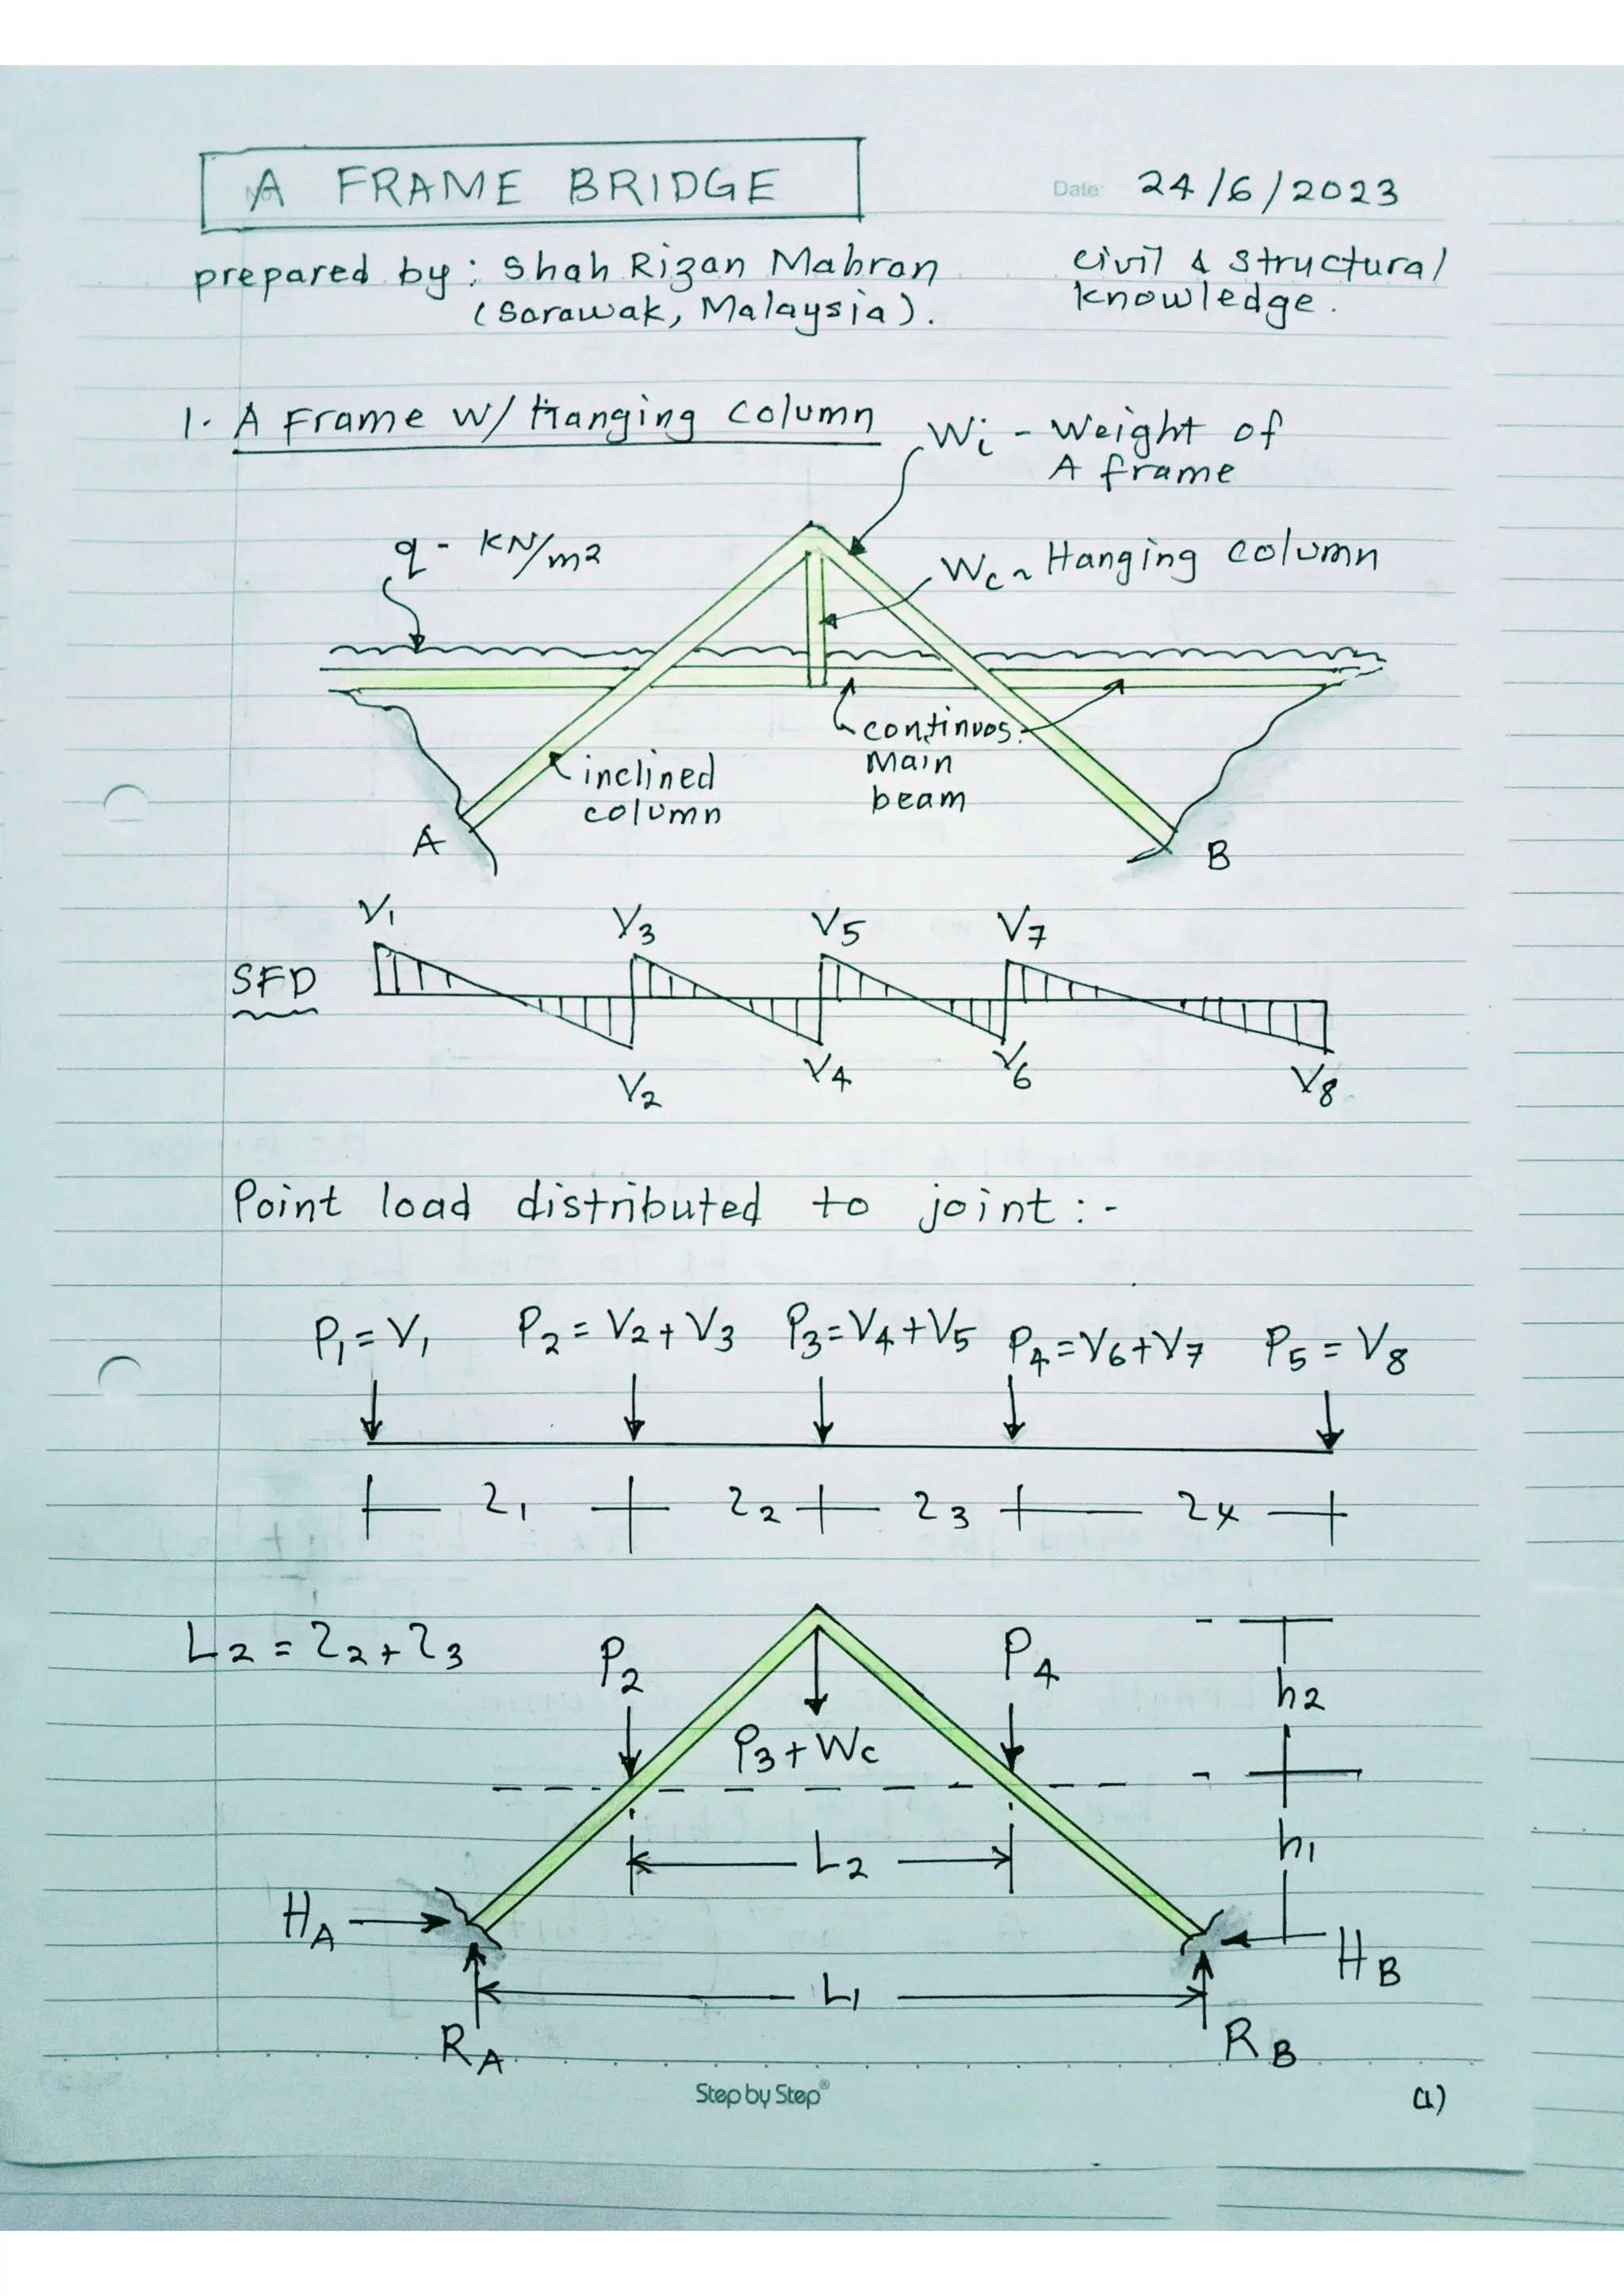 A FRAME BRIDGE
Date: 24/6/2023
prepared by: Shah Rizan Mahran
(Sarawak, Malaysia).
civil & structural
knowledge.
1. A Frame W/ Hanging Column
Wi - Weight of
A frame
q - KN/m2
Wc ~ Hanging column
continuos
Main
beam
inclined
column
A
B
V1 V3 V5 V7
SFD
V2 V4 V6 V8
Point load distributed to joint :-
P1 = V1 P2 = V2 + V3 P3 = V4 + V5 P4 = V6 + V7 P5 = V8
L2 = 22 + 23
P2
P4
h2
P3 + Wc
L2
h1
HA
HB
L1
RA
RB
Step by Step®
(1)